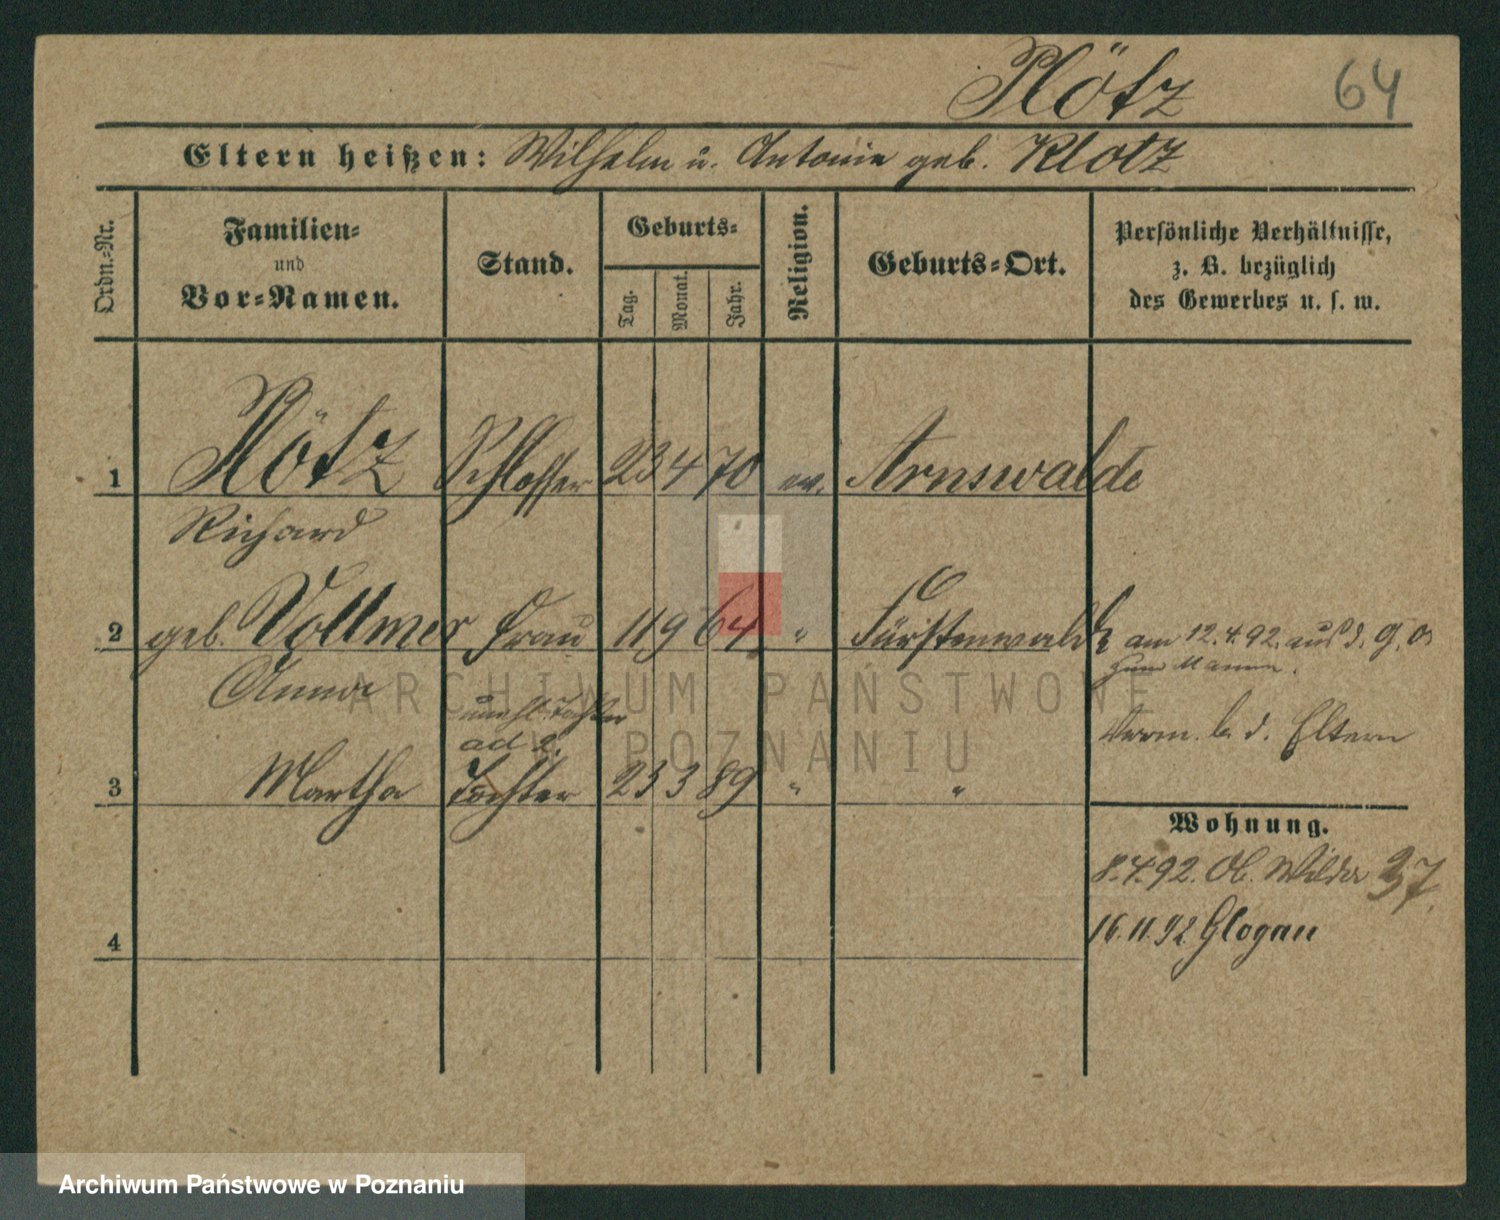 Plötz 64
Eltern heißen: Wilhelm u. Antonie geb. Klotz
Ordn.-Nr.
Familien-
und
Vor-Namen.
Stand.
Geburts-
Tag.
Monat.
Jahr.
Religion.
Geburts-Ort.
Persönliche Verhältnisse,
z. B. bezüglich
des Gewerbes u. s. w.
1 Plötz Schlosser 23 4 70 ev. Arnswalde
Richard
2 geb. Vollmer Frau 11 9 64 " Fürstenwalde
Anna
am 12.4.92 aus
zum Manne.
unehl. Tochter
ad 2.
3 Martha Tochter 23 3 89 " "
Verm. b. d. Eltern
Wohnung.
8.4.92. Ob. Wilda 37.
16.11.92 Glogau
4
ARCHIWUM PAŃSTWOWE
W POZNANIU
Archiwum Państwowe w Poznaniu